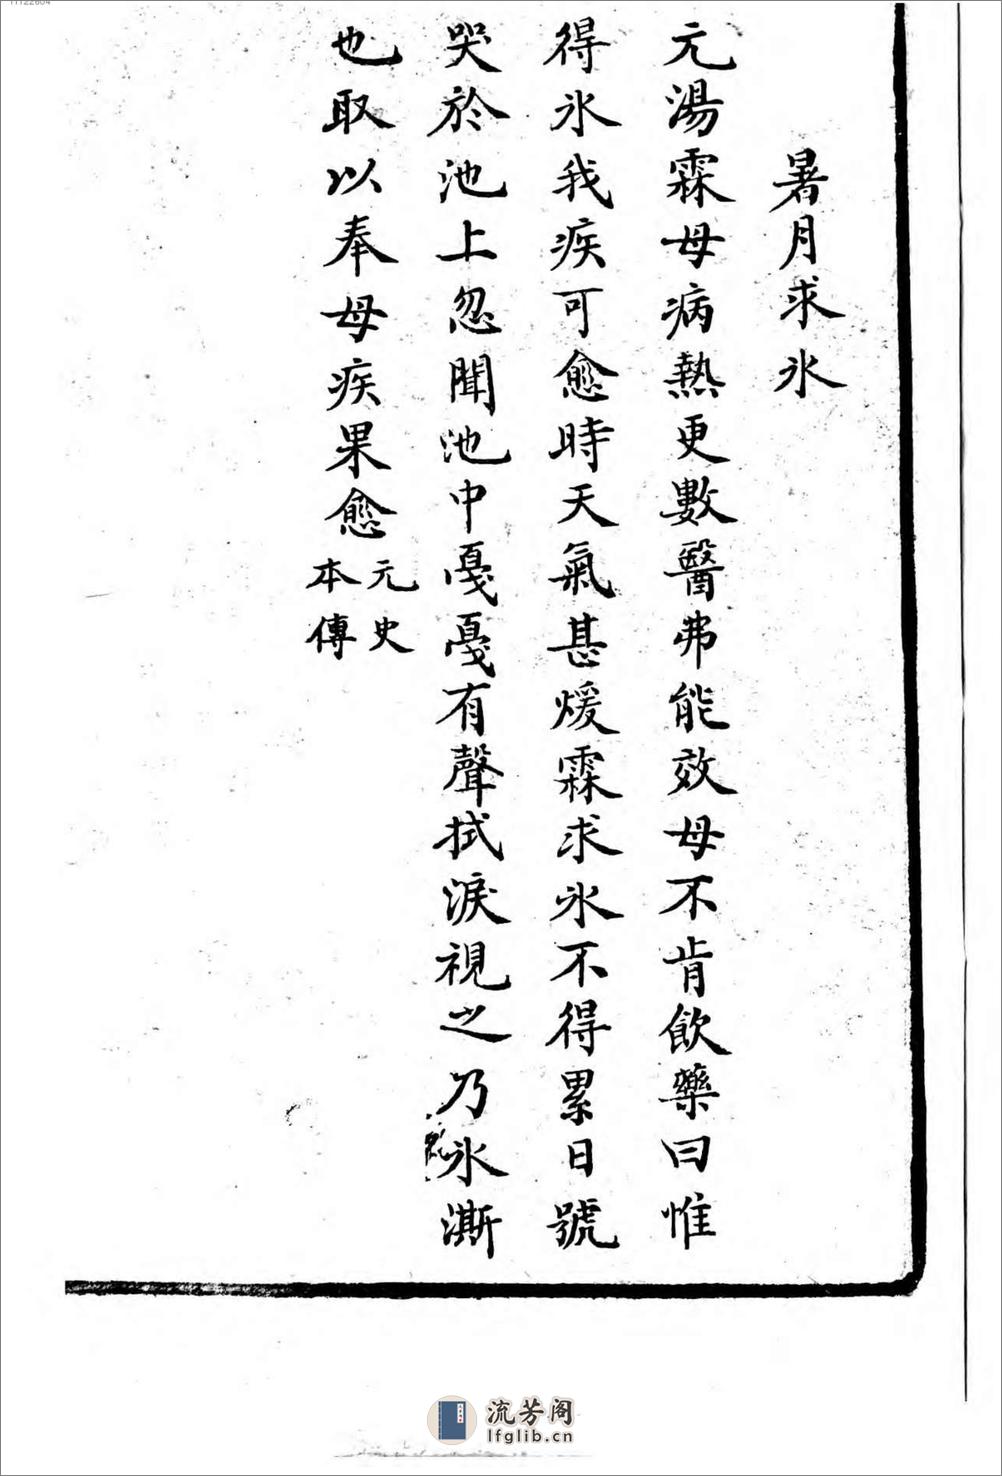 暑月求氷
元湯霖母病熱更數醫弗能效母不肯飲藥曰惟
得氷我疾可愈時天氣甚煖霖求氷不得累日號
哭於池上忽聞池中戞戞有聲拭淚視之乃氷澌
也取以奉母疾果愈
元史
本傳
流芳阁
lfglib.cn